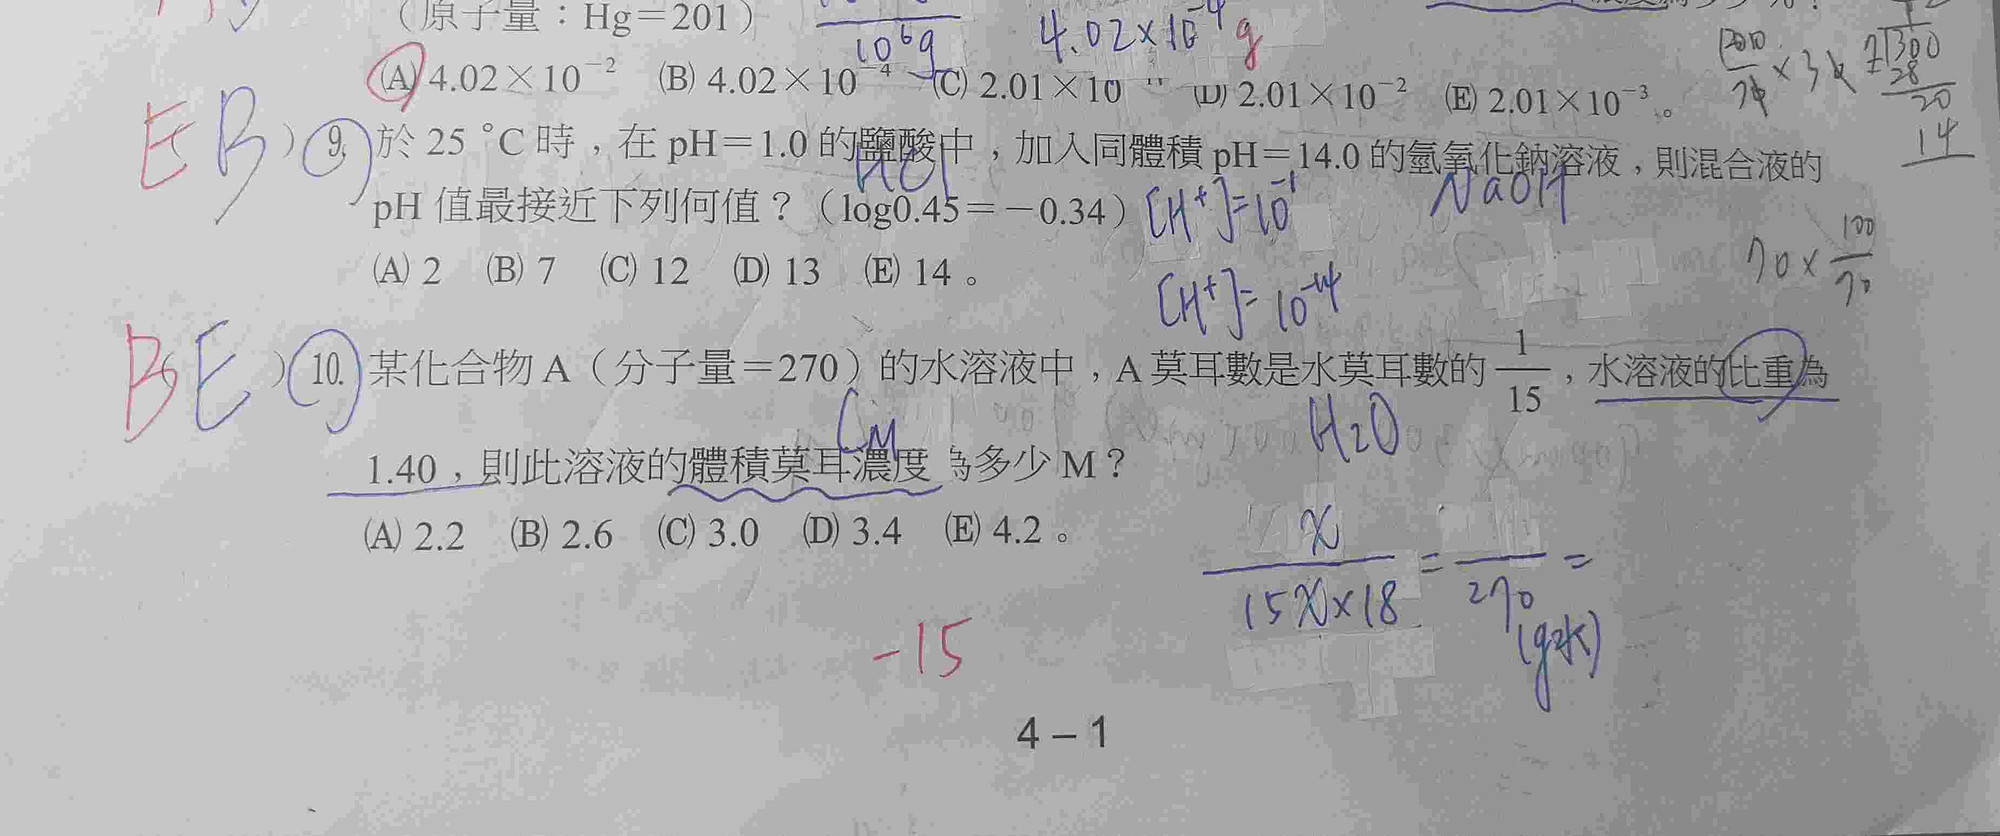 （原子量：Hg＝201）
10⁶g
4.02×10⁻⁴ g
(A) 4.02×10⁻² (B) 4.02×10⁻⁴ (C) 2.01×10 (D) 2.01×10⁻² (E) 2.01×10⁻³。
7 300
28
20
14
E B ) 9. 於 25 °C 時，在 pH＝1.0 的鹽酸中，加入同體積 pH＝14.0 的氫氧化鈉溶液，則混合液的
HCl NaOH
pH 值最接近下列何值？（log0.45＝－0.34）[H⁺]=10⁻¹
70×100/70
(A) 2 (B) 7 (C) 12 (D) 13 (E) 14。
[H⁺]=10⁻¹⁴
B E ) 10. 某化合物 A（分子量＝270）的水溶液中，A 莫耳數是水莫耳數的 1/15，水溶液的比重為
CM H2O
1.40，則此溶液的體積莫耳濃度為多少 M？
(A) 2.2 (B) 2.6 (C) 3.0 (D) 3.4 (E) 4.2。
x/15x×18 = /270 =
(g水)
-15
4－1